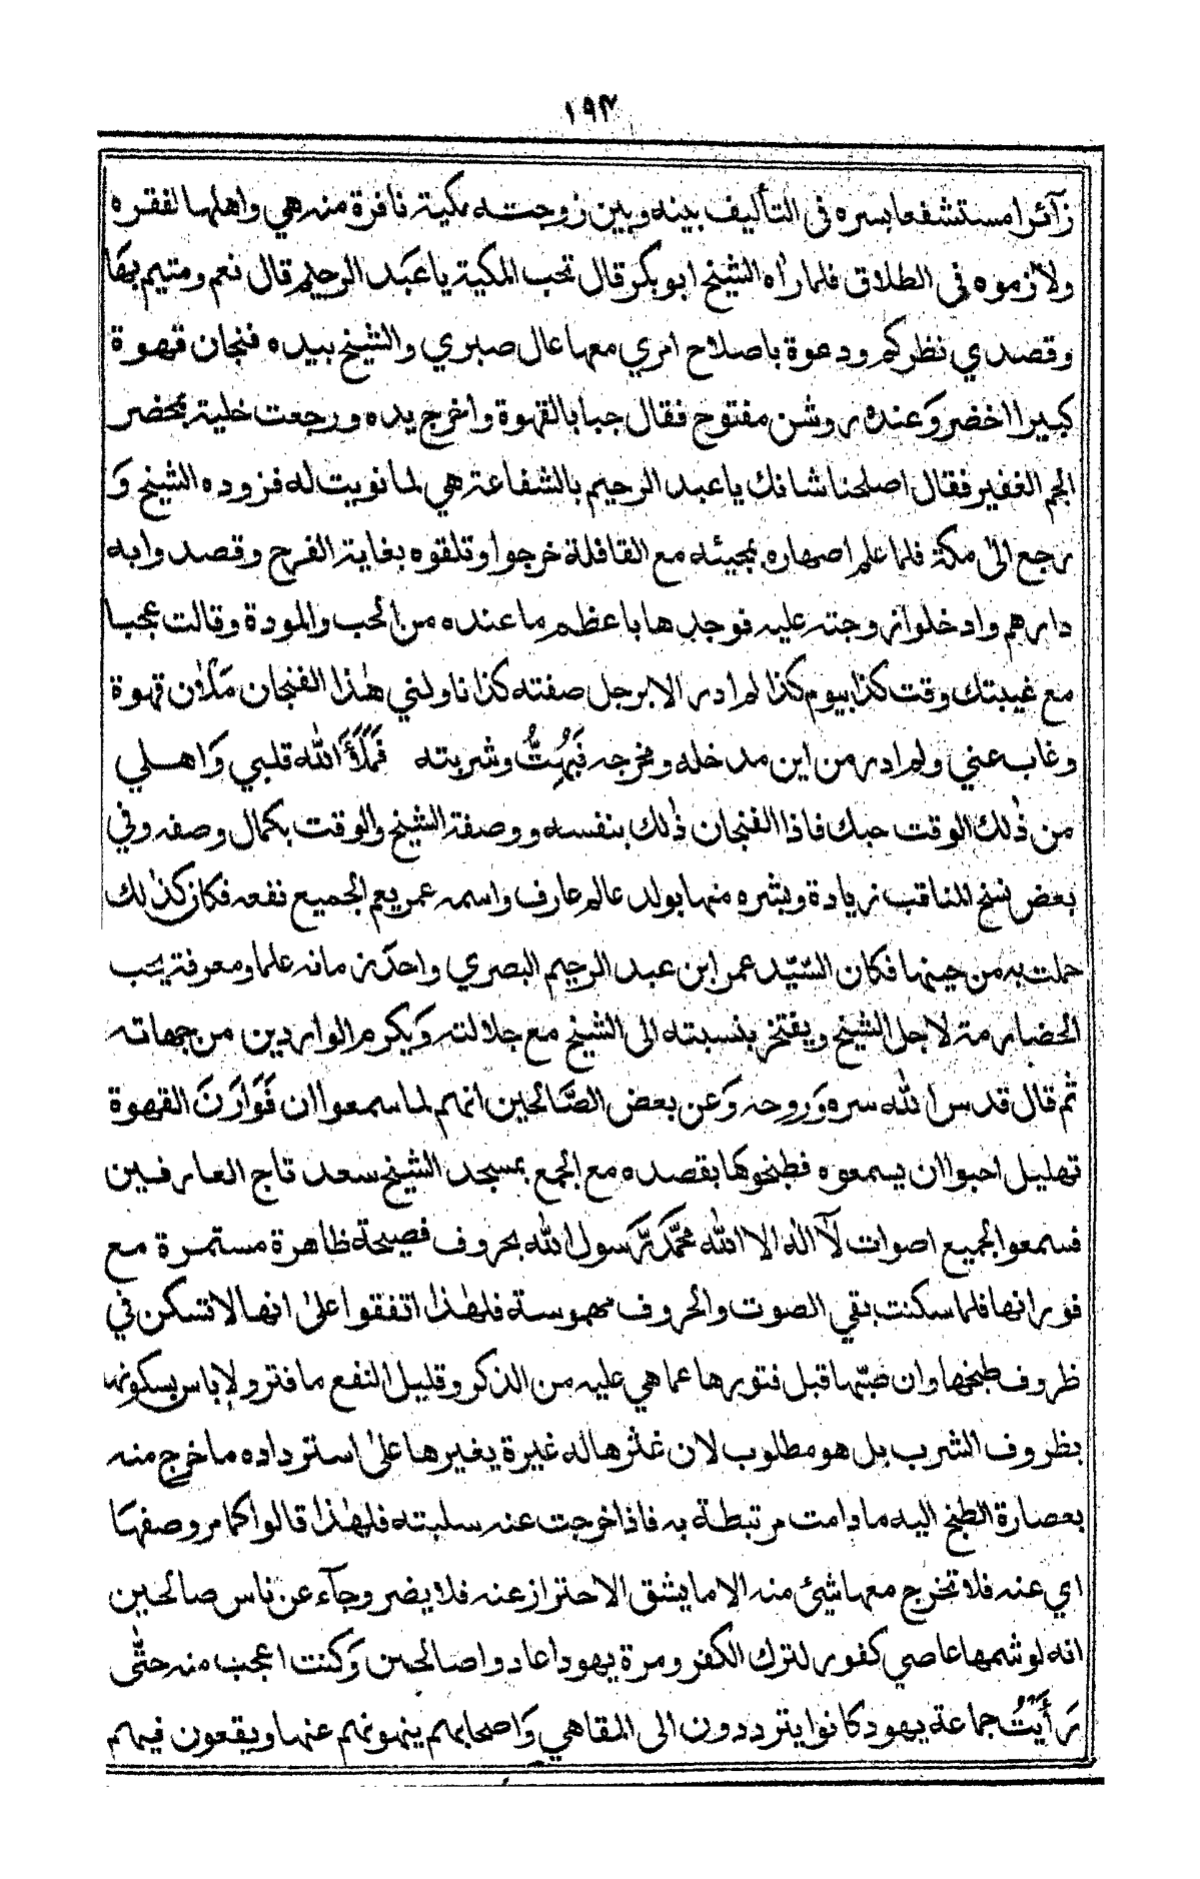 ١٩٣
زآئرا مستشفعا بسره فى التأليف بينه وبين زوجته مكية نافرة منه هي واهلها لفقره
ولازموه في الطلاق فلما رأه الشيخ ابو بكر قال تحب المكية يا عبد الرحيم قال نعم ومتيم بها
وقصدي نظركم ودعوة باصلاح امري معها عال صبري والشيخ بيده فنجان قهوة
كبيرا اخضر وعنده روشن مفتوح فقال جبا بالقهوة واخرج يده ورجعت خلية بمحضر
الجم الغفير فقال اصلحنا شانك يا عبد الرحيم بالشفاعة هي لما نويت له فزوده الشيخ وَ
رجع الى مكة فلما علم اصهاره بمجيئه مع القافلة خرجوا وتلقوه بغاية الفرح وقصدوا به
دارهم وادخلوا زوجته عليه فوجدها باعظم ما عنده من الحب والمودة وقالت عجبا
مع غيبتك وقت كذا بيوم كذا لم ادر الا برجل صفته كذا ناولني هٰذا الفنجان مَلأن قهوة
وغاب عني ولم ادر من اين مدخله ومخرجه فَبُهِتُّ وشربته فَمَلَأَ الله قلبي وَاهلي
من ذٰلك الوقت حبك فاذا الفنجان ذٰلك بنفسه ووصفة الشيخ والوقت بكمال وصفه وفي
بعض نسخ المناقب زيادة وبشره منها بولد عالم عارف واسمه عمر يعم الجميع نفعه فكان كذٰلك
حملت به من حينها فكان السّيّد عمر ابن عبد الرحيم البصري واحدَ زمانه علما ومعرفة يحب
الحضارمة لاجل الشيخ ويفتخر بنسبته الى الشيخ مع جلالته وَيكرم الواردين من جهاته
ثم قال قدس الله سره وَروحه وَعن بعض الصَّالحين انهم لما سمعوا ان فَوَارَنَ القهوة
تهليل احبوا ان يسمعوه فطبخوها بقصده مع الجمع بمسجد الشيخ سعد تاج العارفين
فسمعوا الجميع اصوات لآ اله الا الله محمّد رَّسول الله بحروف فصيحة ظاهرة مستمرة مع
فورانها فلما سكنت بقي الصوت والحروف مهموسة فلهٰذا اتفقوا علىٰ انها لا تسكن في
ظروف طبخها وان صبّها قبل فتورها عما هي عليه من الذكر وقليل النفع ما فتر ولا باس بسكونها
بظروف الشرب بل هو مطلوب لان غثرها له غيرة يغيرها علىٰ استرداده ما خرج منه
بعصارة الطبخ اليه ما دامت مرتبطة به فاذا خرجت عنه سلبته فلهٰذا قالوا كما مر وصفها
اي عنه فلا تخرج معها شئ منه الا ما يشق الاحتراز عنه فلا يضر وجآء عن ناس صالحين
انه لو شمها عاصي كفور لترك الكفر ومرة يهود اعادوا صالحين وَكنت اعجب منه حتّى
رَأيتُ جماعة يهود كانوا يترددون الى المقاهي وَاصحابهم ينهونهم عنها ويقعون فيهم